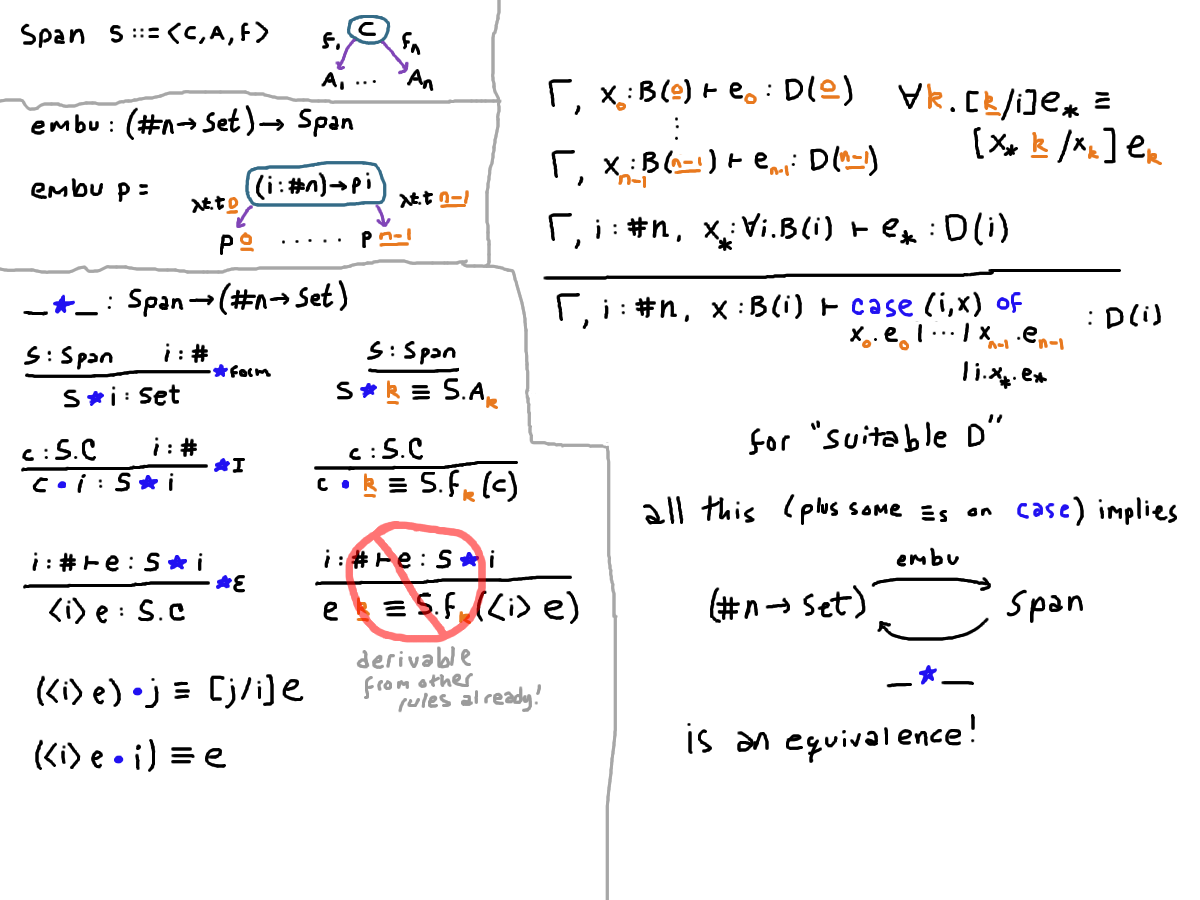 Span S ::= <C, A, f>
f₁ C fₙ
A₁ ... Aₙ
embu : (#n → Set) → Span
embu p =
(i : #n) → p i
λt.t 0 λt.t n-1
p 0 ..... p n-1
_★_ : Span → (#n → Set)
S : Span i : #
★Form
S ★ i : Set
S : Span
S ★ k ≡ S.Aₖ
c : S.C i : #
★I
c • i : S ★ i
c : S.C
c • k ≡ S.fₖ(c)
i : # ⊢ e : S ★ i
★E
⟨i⟩ e : S.C
i : # ⊢ e : S ★ i
e k ≡ S.fₖ(⟨i⟩ e)
derivable
from other
rules already!
(⟨i⟩ e) • j ≡ [j/i] e
(⟨i⟩ e • i) ≡ e
Γ, x₀ : B(0) ⊢ e₀ : D(0)
⋮
Γ, xₙ₋₁ : B(n-1) ⊢ eₙ₋₁ : D(n-1)
∀k. [k/i]e* ≡
[x* k / xₖ] eₖ
Γ, i : #n, x* : ∀i.B(i) ⊢ e* : D(i)
Γ, i : #n, x : B(i) ⊢ case (i,x) of : D(i)
x₀.e₀ | ... | xₙ₋₁.eₙ₋₁
| i.x*.e*
for "suitable D"
all this (plus some ≡s on case) implies
embu
(#n → Set) Span
_★_
is an equivalence!